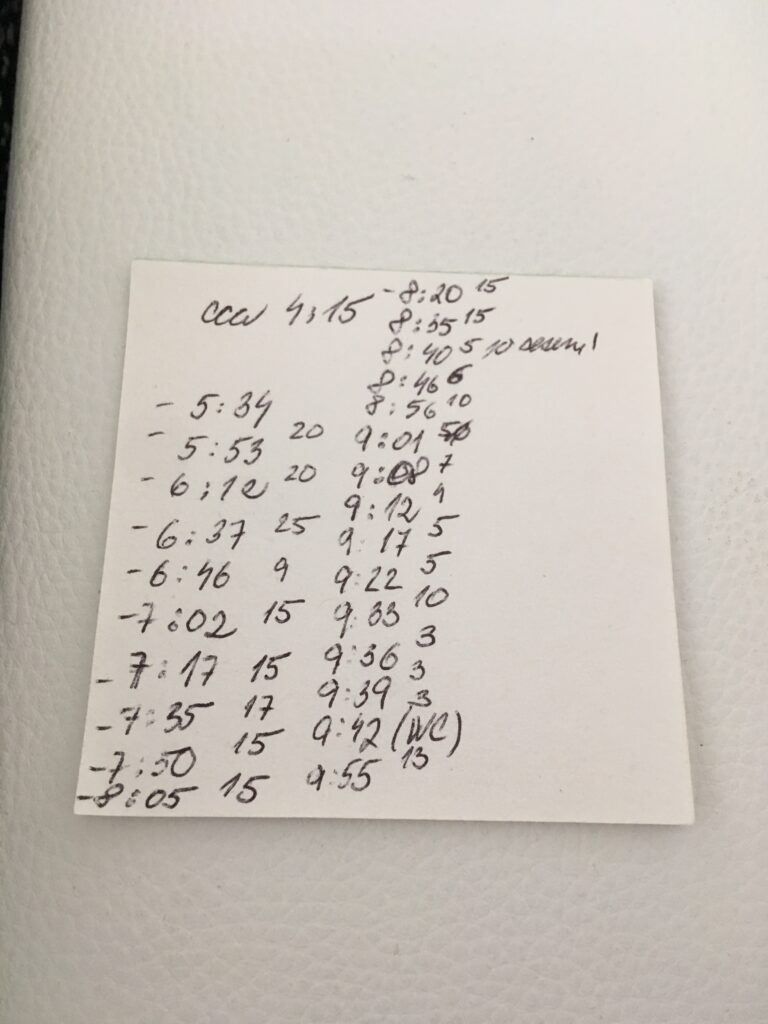 4:15
- 5:34
- 5:53 20
- 6:12 20
- 6:37 25
- 6:46 9
- 7:02 15
- 7:17 15
- 7:35 17
- 7:50 15
- 8:05 15
- 8:20 15
8:35 15
8:40 5 10
8:46 6
8:56 10
9:01
9:08 7
9:12 4
9:17 5
9:22 5
9:33 10
9:36 3
9:39 3
9:42 3 (WC)
9:55 13